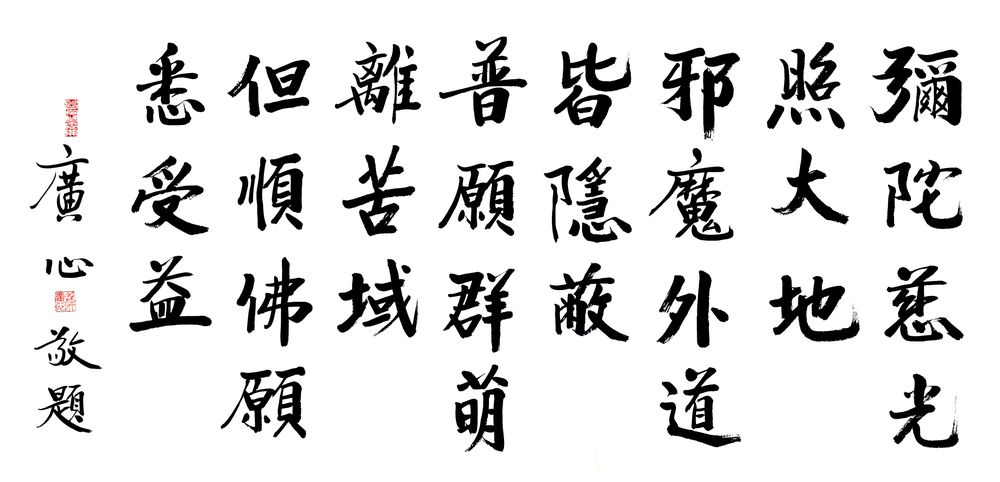 彌陀慈光
照大地
邪魔外道
皆隱蔽
普願群萌
離苦域
但順佛願
悉受益
廣心敬題